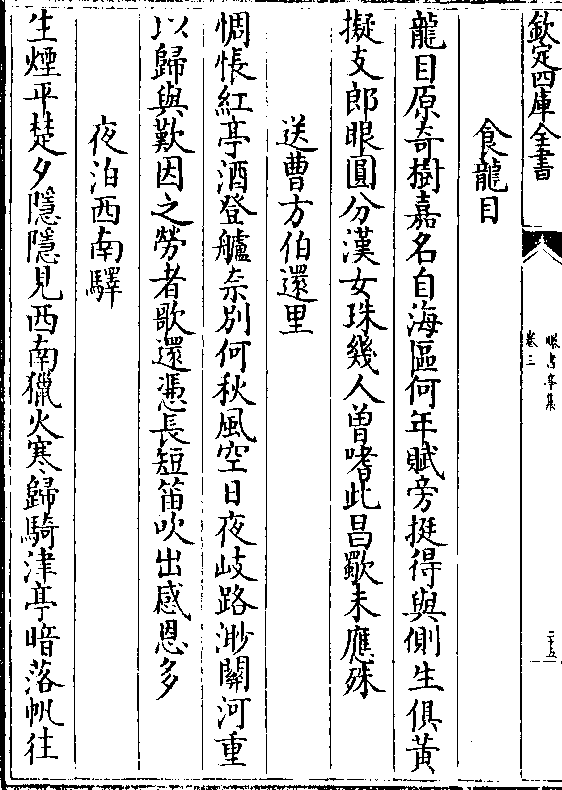 欽定四庫全書
卷三
二十五
食龍目
龍目原奇樹嘉名自海區何年賦旁挺得與側生俱黃
擬支郎眼圓分漢女珠幾人曽嗜此昌歜未應殊
送曹方伯還里
惆悵紅亭酒登艫奈别何秋風空日夜岐路渺關河重
以歸與歎因之勞者歌還慿長短笛吹出感恩多
夜泊西南驛
生煙平楚夕隱隱見西南獵火寒歸騎津亭暗落帆往